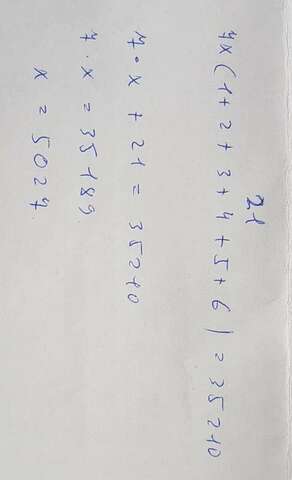 21
7x(1+2+3+4+5+6)=35210
7·x+21=35210
7·x=35189
x=5027